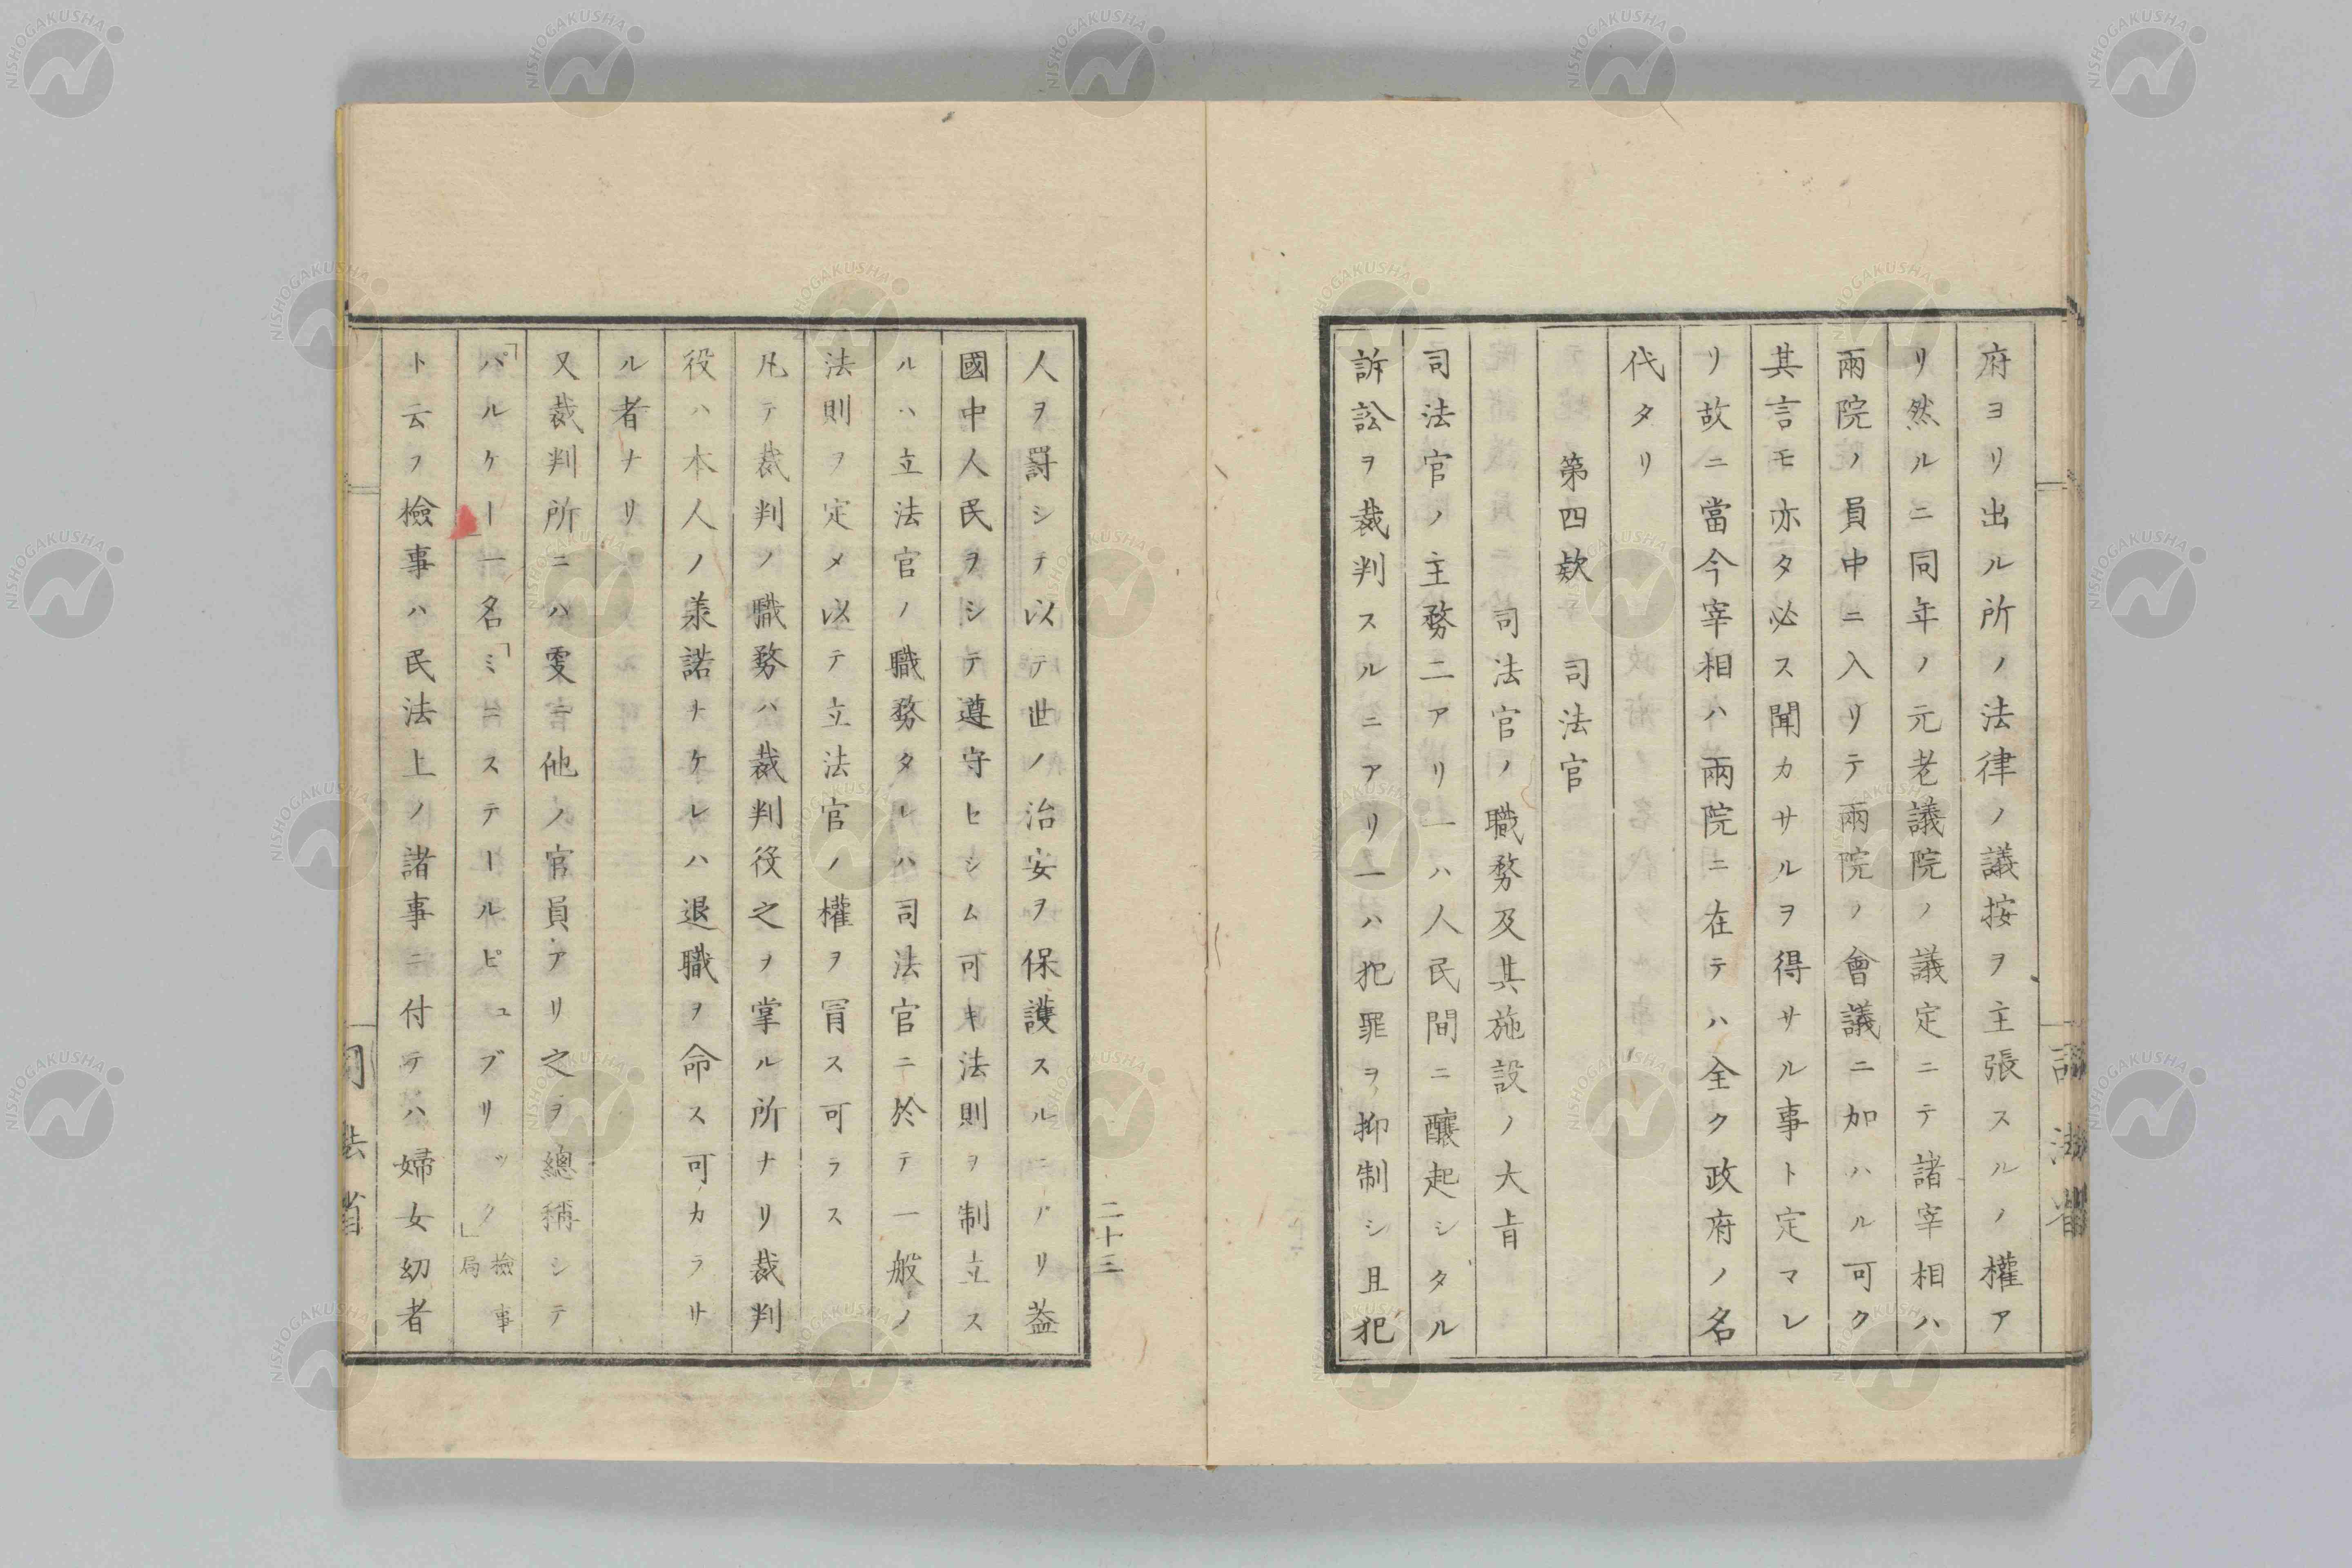 府ヨリ出ル所ノ法律ノ議按ヲ主張スルノ權ア
リ然ルニ同年ノ元老議院ノ議定ニテ諸宰相ハ
兩院ノ員中ニ入リテ兩院ノ會議ニ加ハル可ク
其言モ亦タ必ス聞カサルヲ得サル事ト定マレ
リ故ニ當今宰相ハ兩院ニ在テハ全ク政府ノ名
代タリ
第四欵 司法官
司法官ノ職務及其施設ノ大旨
司法官ノ主務二アリ一ハ人民間ニ釀起シタル
訴訟ヲ裁判スルニアリ一ハ犯罪ヲ抑制シ且犯
人ヲ罸シテ以テ世ノ治安ヲ保護スルニアリ葢
國中人民ヲシテ遵守セシム可キ法則ヲ制立ス
ルハ立法官ノ職務タレハ司法官ニ於テ一般ノ
法則ヲ定メ以テ立法官ノ權ヲ冐ス可ラス
凡テ裁判ノ職務ハ裁判役之ヲ掌ル所ナリ裁判
役ハ本人ノ羕諾ナケレハ退職ヲ命ス可カラサ
ル者ナリ
又裁判所ニハ雯ニ他ノ官員アリ之ヲ總稱シテ
「パルケー一名「ミニステールピュブリック」檢事局
ト云フ檢事ハ民法上ノ諸事ニ付テハ婦女幼者
二十三
司法省
司法省
NISHOGAKUSHA